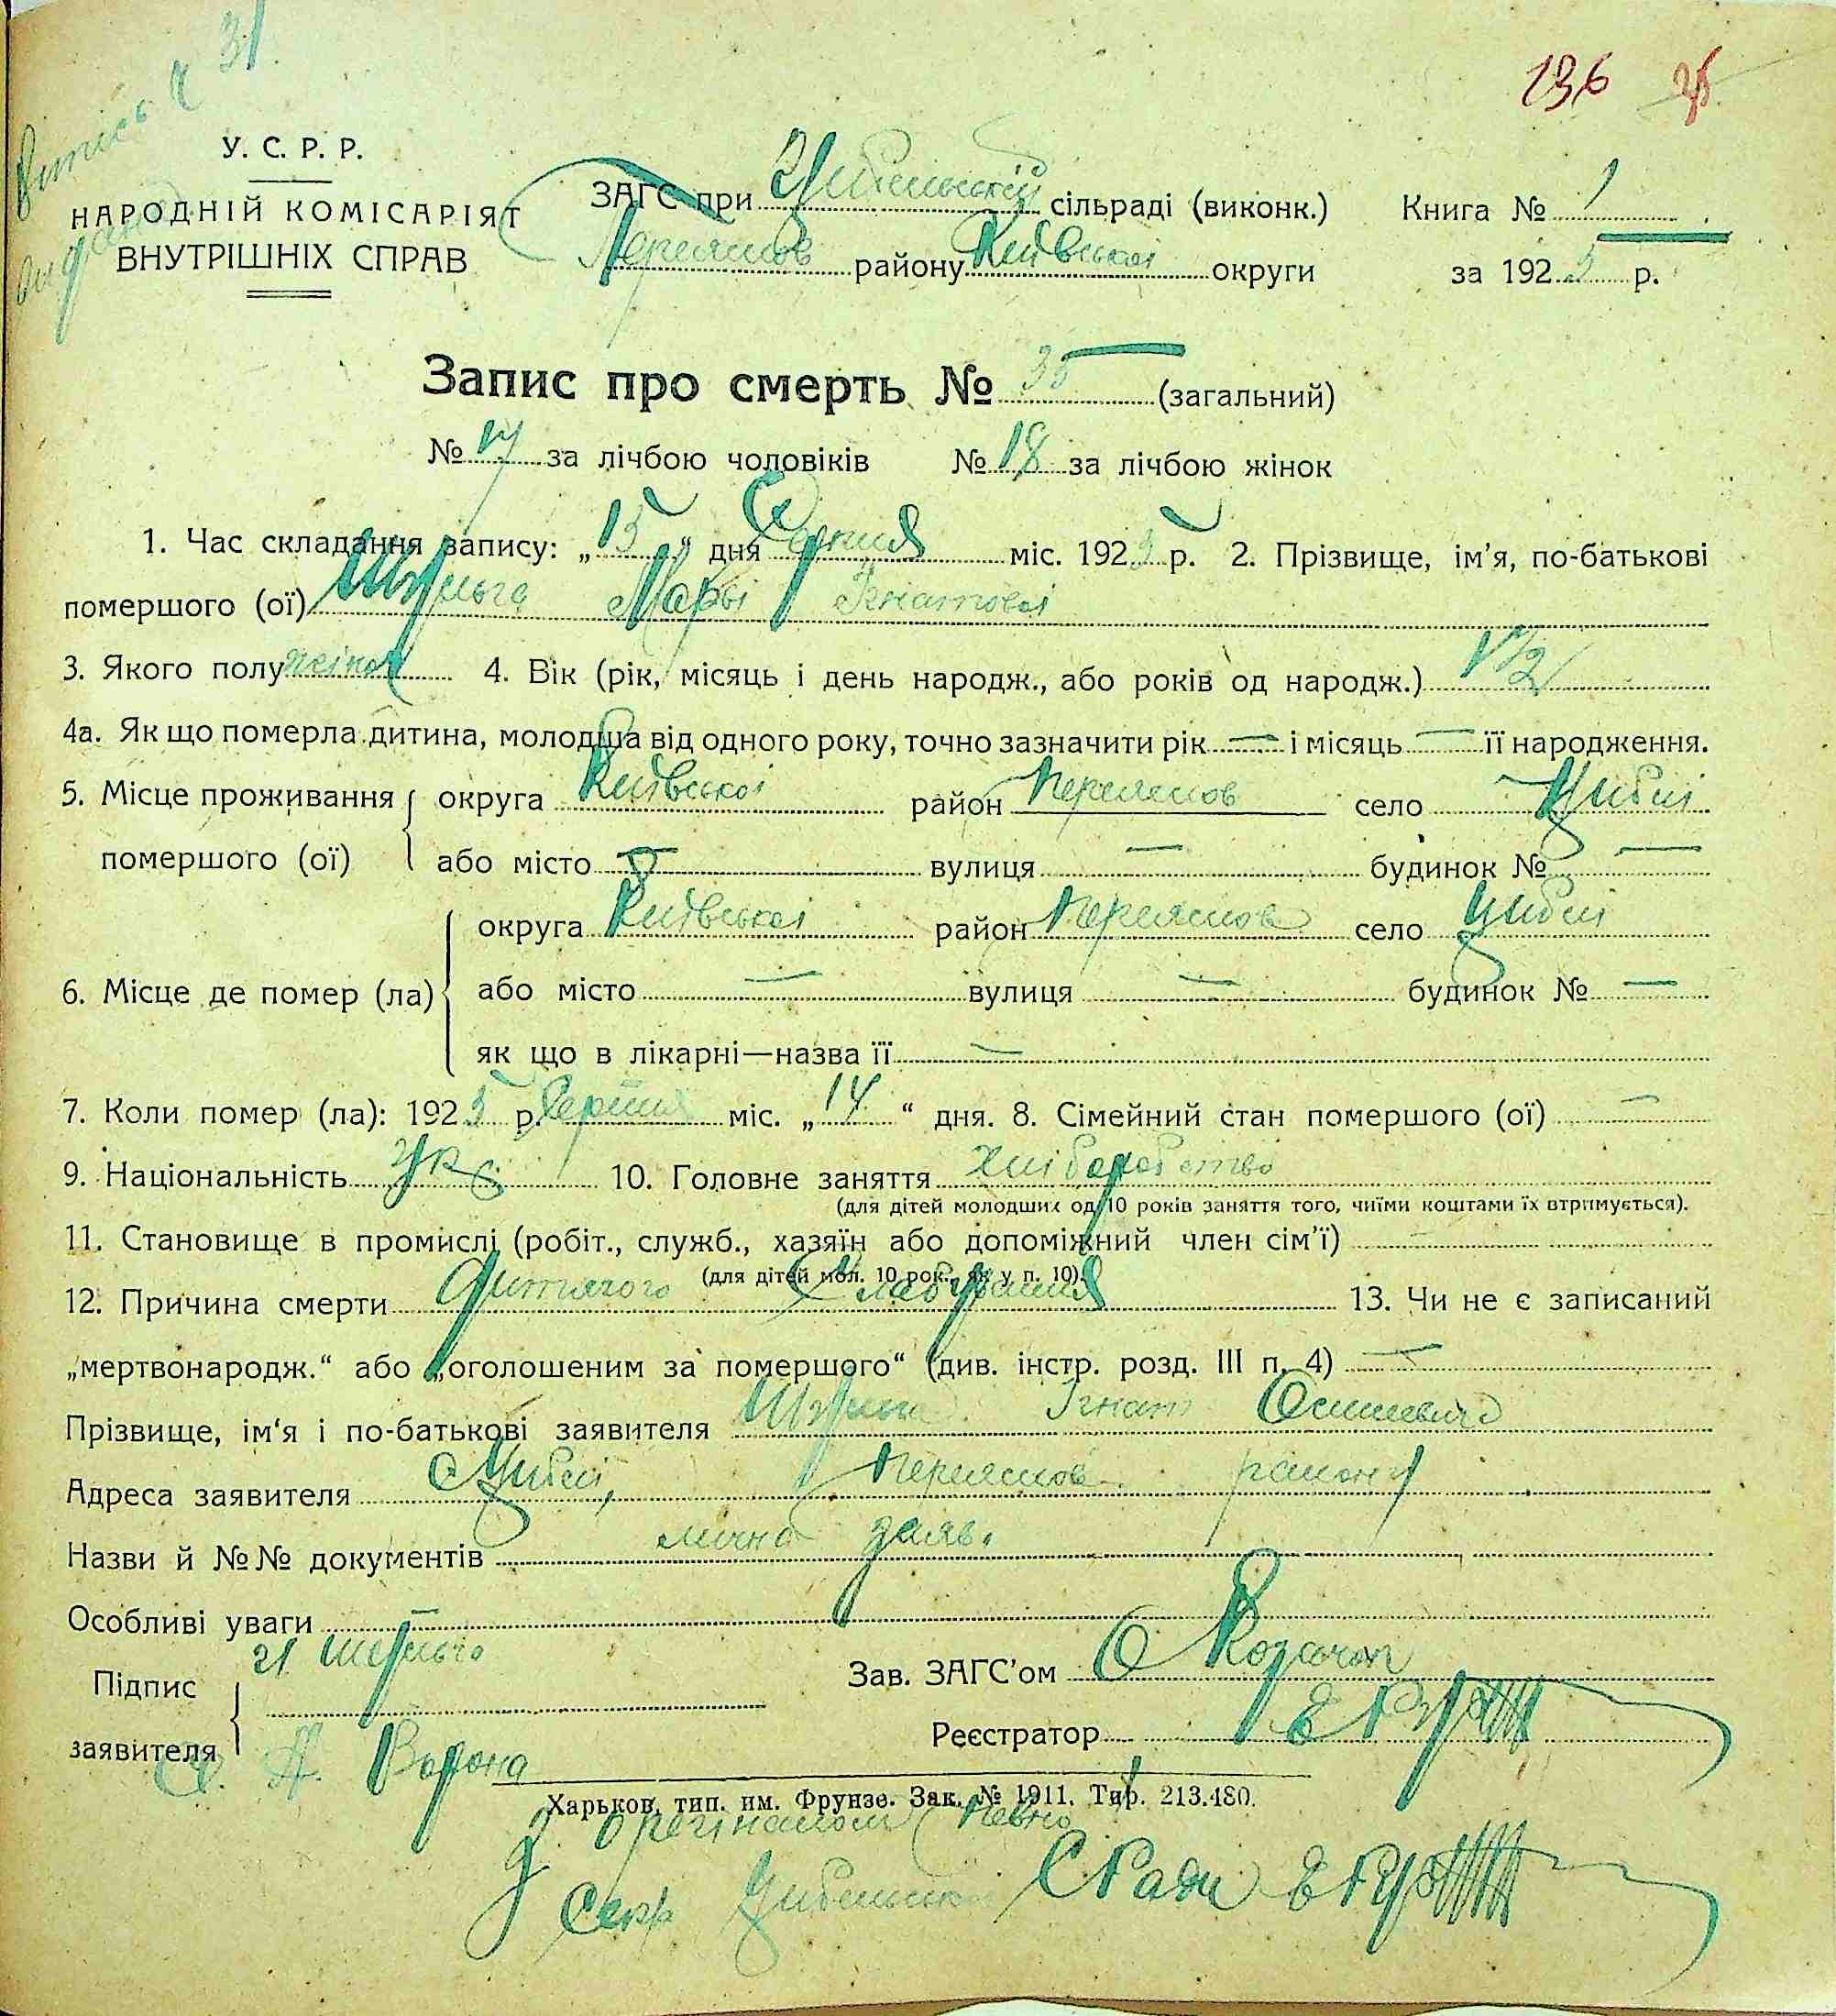 Витпісь Ч 31.
видана
136 25
У. С. Р. Р.
НАРОДНІЙ КОМІСАРІЯТ
ВНУТРІШНІХ СПРАВ
ЗАГС при Цибельській сільраді (виконк.) Книга № 1
Переяслов району Київської округи за 1925 р.
Запис про смерть № 35 (загальний)
№ 17 за лічбою чоловіків № 18 за лічбою жінок
1. Час складання запису: „15“ дня Серпня міс. 1925 р. 2. Прізвище, ім’я, по-батькові
помершого (ої) Марії Ігнатової
3. Якого полу жіноч 4. Вік (рік, місяць і день народж., або років од народж.) 1 1/2
4а. Як що померла дитина, молодша від одного року, точно зазначити рік — і місяць — її народження.
5. Місце проживання округа Київської район Переяслов село Циблі
помершого (ої) або місто — вулиця — будинок № —
округа Київської район Переяслов село Циблі
6. Місце де помер (ла) або місто — вулиця — будинок № —
як що в лікарні—назва її —
7. Коли помер (ла): 1925 р. Серпня міс. „14“ дня. 8. Сімейний стан помершого (ої) —
9. Національність Укр 10. Головне заняття хліборобство
(для дітей молодших од 10 років заняття того, чиїми коштами їх втримується).
11. Становище в промислі (робіт., служб., хазяїн або допоміжний член сім’ї) —
(для дітей мол. 10 рок., як у п. 10)
12. Причина смерті Дитячого 13. Чи не є записаний
„мертвонародж.“ або „оголошеним за помершого“ (див. інстр. розд. III п. 4) —
Прізвище, ім‘я і по-батькові заявителя Ігнат
Адреса заявителя с Циблі, Переяслов району
Назви й №№ документів лична заяв.
Особливі уваги —
Підпис
заявителя А. Ворона
Зав. ЗАГС’ом Козачок
Реєстратор
Харьков, тип. им. Фрунзе. Зак. № 1911. Тир. 213.480.
З орегіналом певно
Секр Цибельськ С Ради